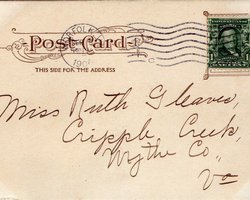 Post Card
THIS SIDE FOR THE ADDRESS
Miss Ruth Gleaves,
Cripple Creek,
Wythe Co.,
Va